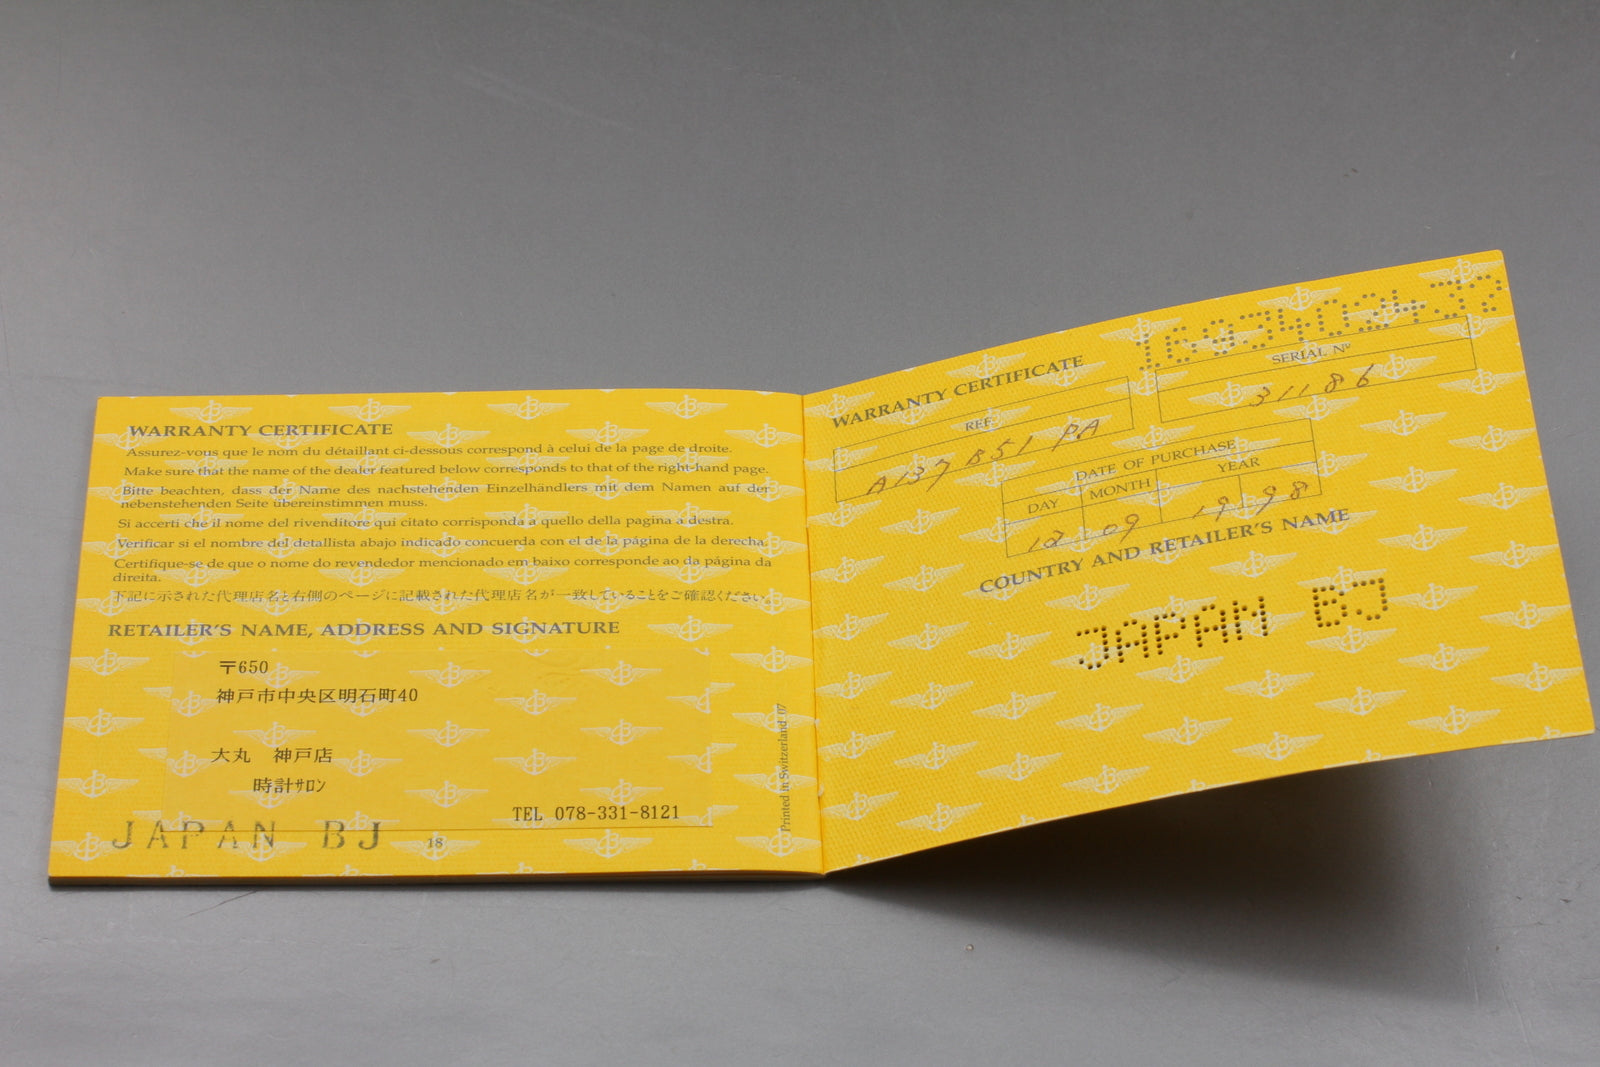 WARRANTY CERTIFICATE
Assurez-vous que le nom du détaillant ci-dessous correspond à celui de la page de droite.
Make sure that the name of the dealer featured below corresponds to that of the right-hand page.
Bitte beachten, dass der Name des nachstehenden Einzelhändlers mit dem Namen auf der
nebenstehenden Seite übereinstimmen muss.
Si accerti che il nome del rivenditore qui citato corrisponda a quello della pagina a destra.
Verificar si el nombre del detallista abajo indicado concuerda con el de la página de la derecha.
Certifique-se de que o nome do revendedor mencionado em baixo corresponde ao da página da
direita.
下記に示された代理店名と右側のページに記載された代理店名が一致していることをご確認ください。
RETAILER'S NAME, ADDRESS AND SIGNATURE
〒650
神戸市中央区明石町40
大丸 神戸店
時計ｻﾛﾝ
TEL 078-331-8121
JAPAN BJ
18
Printed in Switzerland 07
WARRANTY CERTIFICATE
REF.
A137 B51 PA
SERIAL No
31186
DATE OF PURCHASE
DAY MONTH YEAR
12 09 1998
COUNTRY AND RETAILER'S NAME
JAPAN BJ